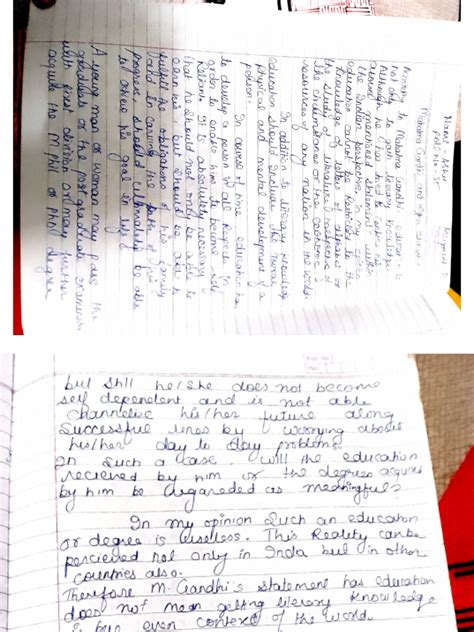 Name:
Assignment 5
Mahatma Gandhi and
According to Mahatma Gandhi education is
not only to gain literary knowledge
Although he has tried
above mentioned statement within
the Indian perspective, in my
education cannot be restricted to the
knowledge of letters or alphabet or
the study of literature irrespective of
the circumstances or the economic
resources of any nation in the world.
In addition to literary knowledge
education should include the moral
physical and mental development of a
person.
In course of time education has
to develop a person in all respects in
order to enable him to become self
Reliant. It is absolutely necessary
that he should not only be able to
earn but should be able to
fulfill the obligations of his family
and in the path of
progress, should be able
to achieve his goal in
A young man or woman may pass the
graduate or the post graduate examination
with first division or may further
acquire the M Phil or PhD degree
but still he/she does not become
self dependent and is not able
channelise his/her future along
Successful lines by worrying about
his/her day to day problems.
In such a case, will the education
recieved by him or the degrees acquired
by him be regareded as meaningful
In my opinion such an education
or degree is useless. This Reality can be
percieved not only in India but in other
countries also.
Therefore M. Gandhi's statement has education
does not mean getting literary knowledge
is true even context of the world.